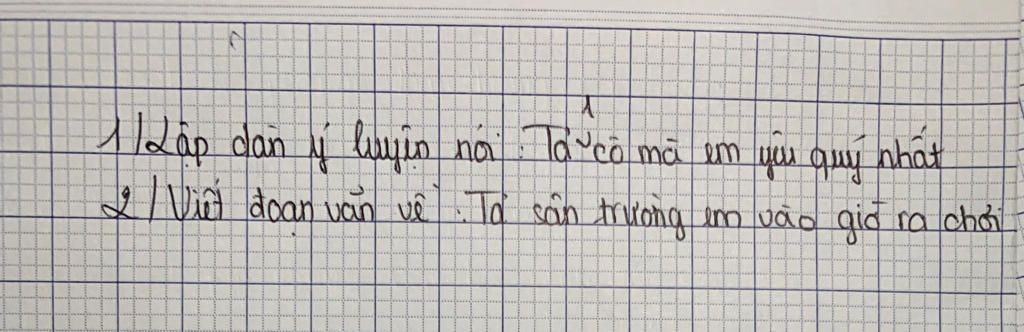 1/ Lập dàn ý luyện nói : Tả 1 cô mà em yêu quý nhất
2/ Viết đoạn văn về : Tả sân trường em vào giờ ra chơi